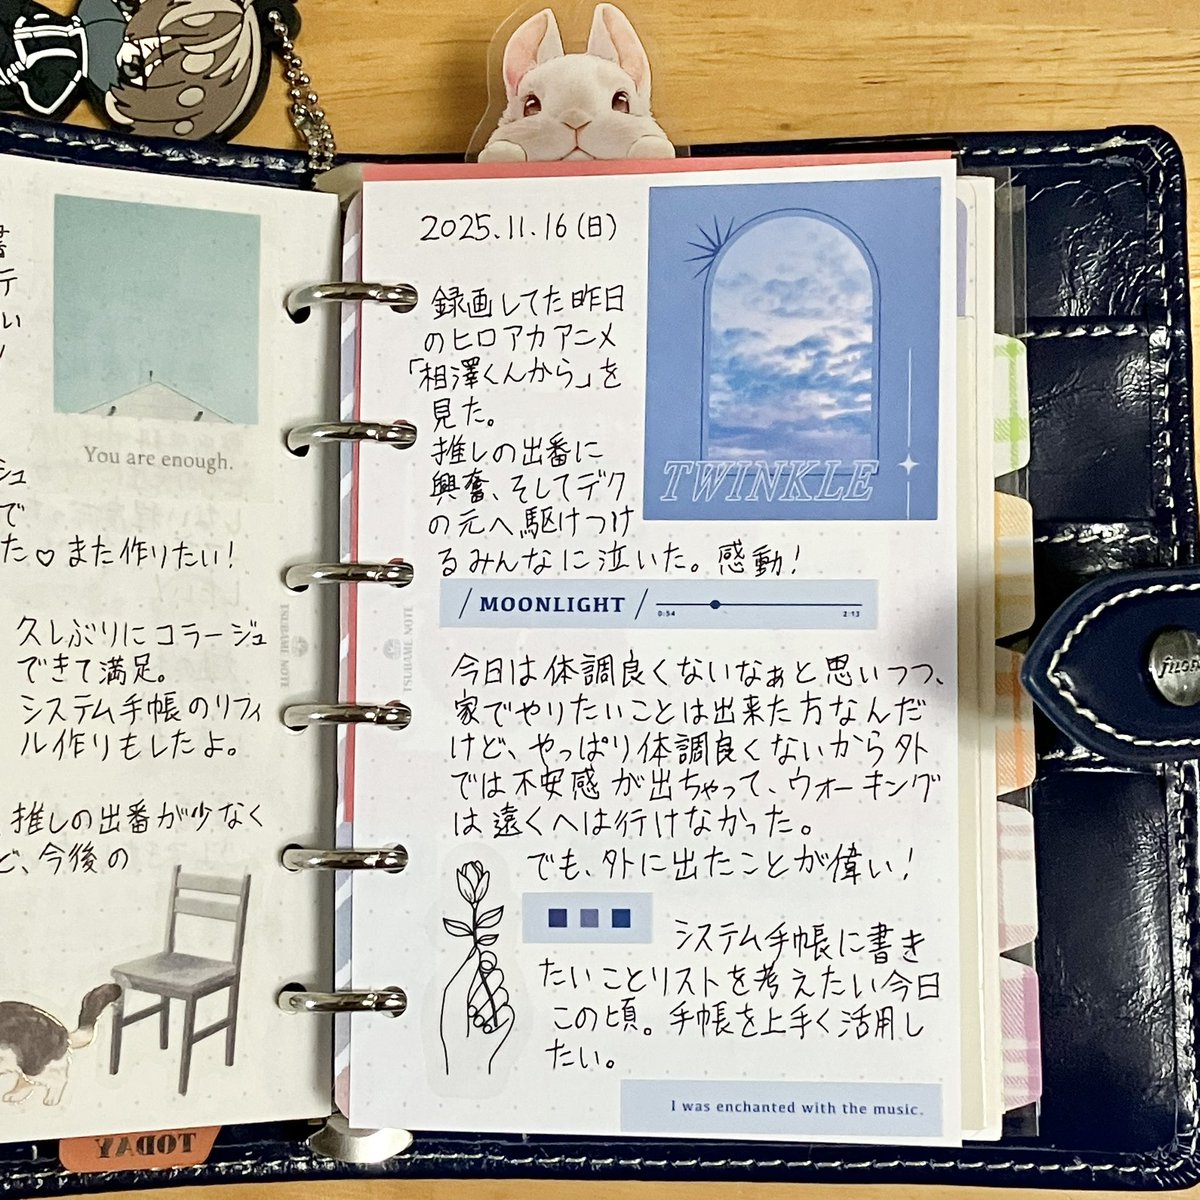 い
You are enough.
シュ
で
た♡また作りたい!
久しぶりにコラージュ
できて満足。
システム手帳のリフィ
ル作りもしたよ。
推しの出番が少なく
ど、今後の
TSUBAME NOTE
TODAY
2025.11.16(日)
録画してた昨日
のヒロアカアニメ
「相澤くんから」を
見た。
推しの出番に
興奮、そしてデク
の元へ駆けつけ
るみんなに泣いた。感動!
TWINKLE
/ MOONLIGHT /
0:54 2:13
TSUBAME NOTE
今日は体調良くないなぁと思いつつ、
家でやりたいことは出来た方なんだ
けど、やっぱり体調良くないから外
では不安感が出ちゃって、ウォーキング
は遠くへは行けなかった。
でも、外に出たことが偉い!
システム手帳に書き
たいことリストを考えたい今日
この頃。手帳を上手く活用し
たい。
I was enchanted with the music.